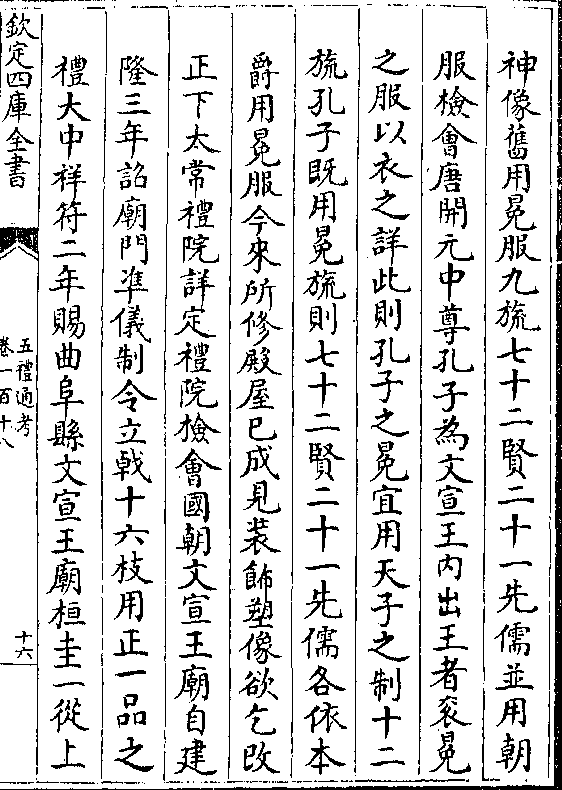 神像舊用冕服九旒七十二賢二十一先儒並用朝
服檢會唐開元中尊孔子為文宣王內出王者衮冕
之服以衣之詳此則孔子之冕宜用天子之制十二
旒孔子既用冕旒則七十二賢二十一先儒各依本
爵用冕服今來所修殿屋已成見裝飾塑像欲乞改
正下太常禮院詳定禮院檢會國朝文宣王廟自建
隆三年詔廟門準儀制令立戟十六枝用正一品之
禮大中祥符二年賜曲阜縣文宣王廟桓圭一從上
欽定四庫全書
五禮通考
卷一百十八
十六